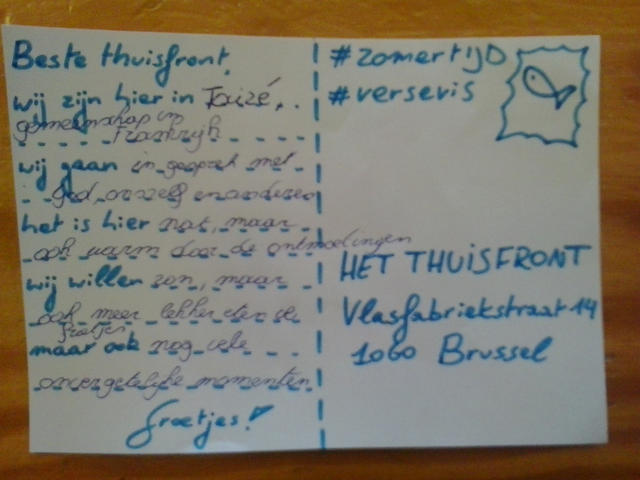 Beste thuisfront,
wij zijn hier in Taizé, ..
gemeenschap in
Frankrijk
wij gaan in gesprek met
god, onszelf en anderen
het is hier nat, maar
ook warm door de ontmoetingen
wij willen zon, maar
ook meer lekker eten
frietjes
maar ook nog vele
onvergetelijke momenten
Groetjes!
#zomertijD
#versevis
HET THUISFRONT
Vlasfabriekstraat 14
1060 Brussel